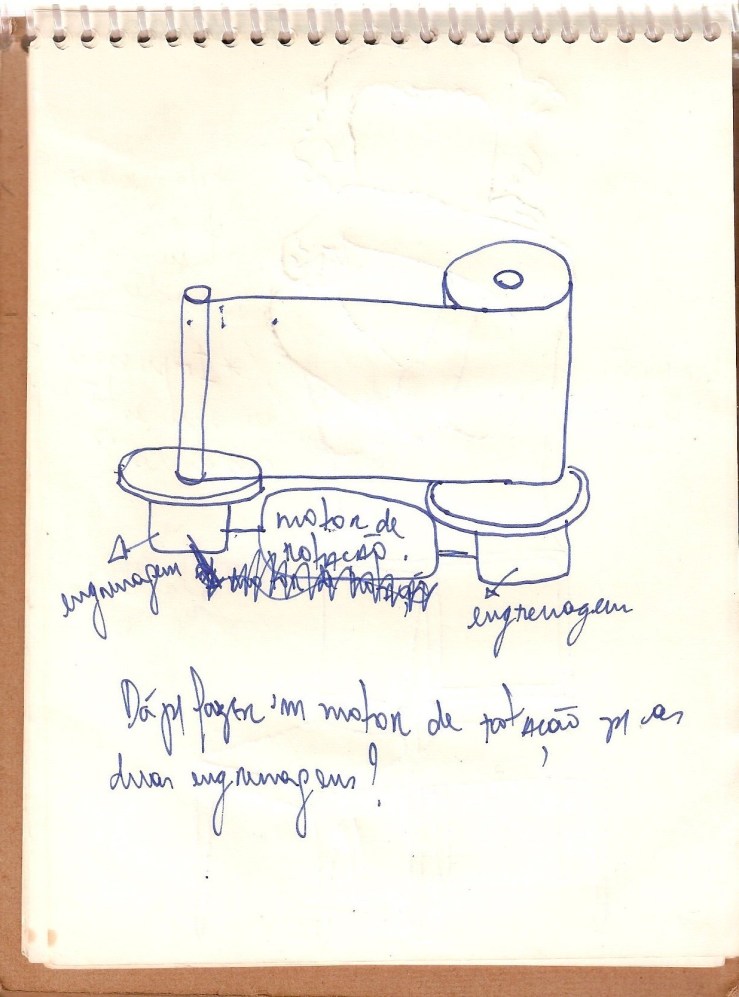 motor de
rotação.
engrenagem
engrenagem
Dá p/ fazer um motor de rotação p/ as
duas engrenagens?